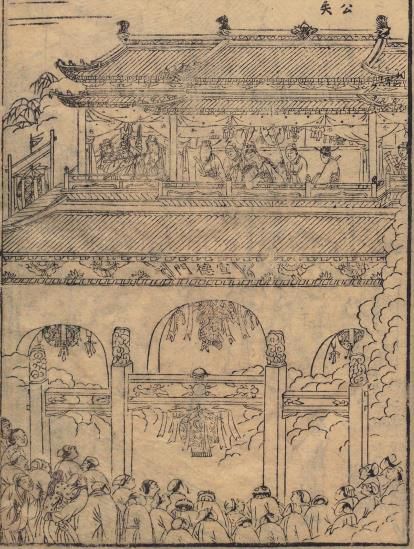 公
矣
宣德門